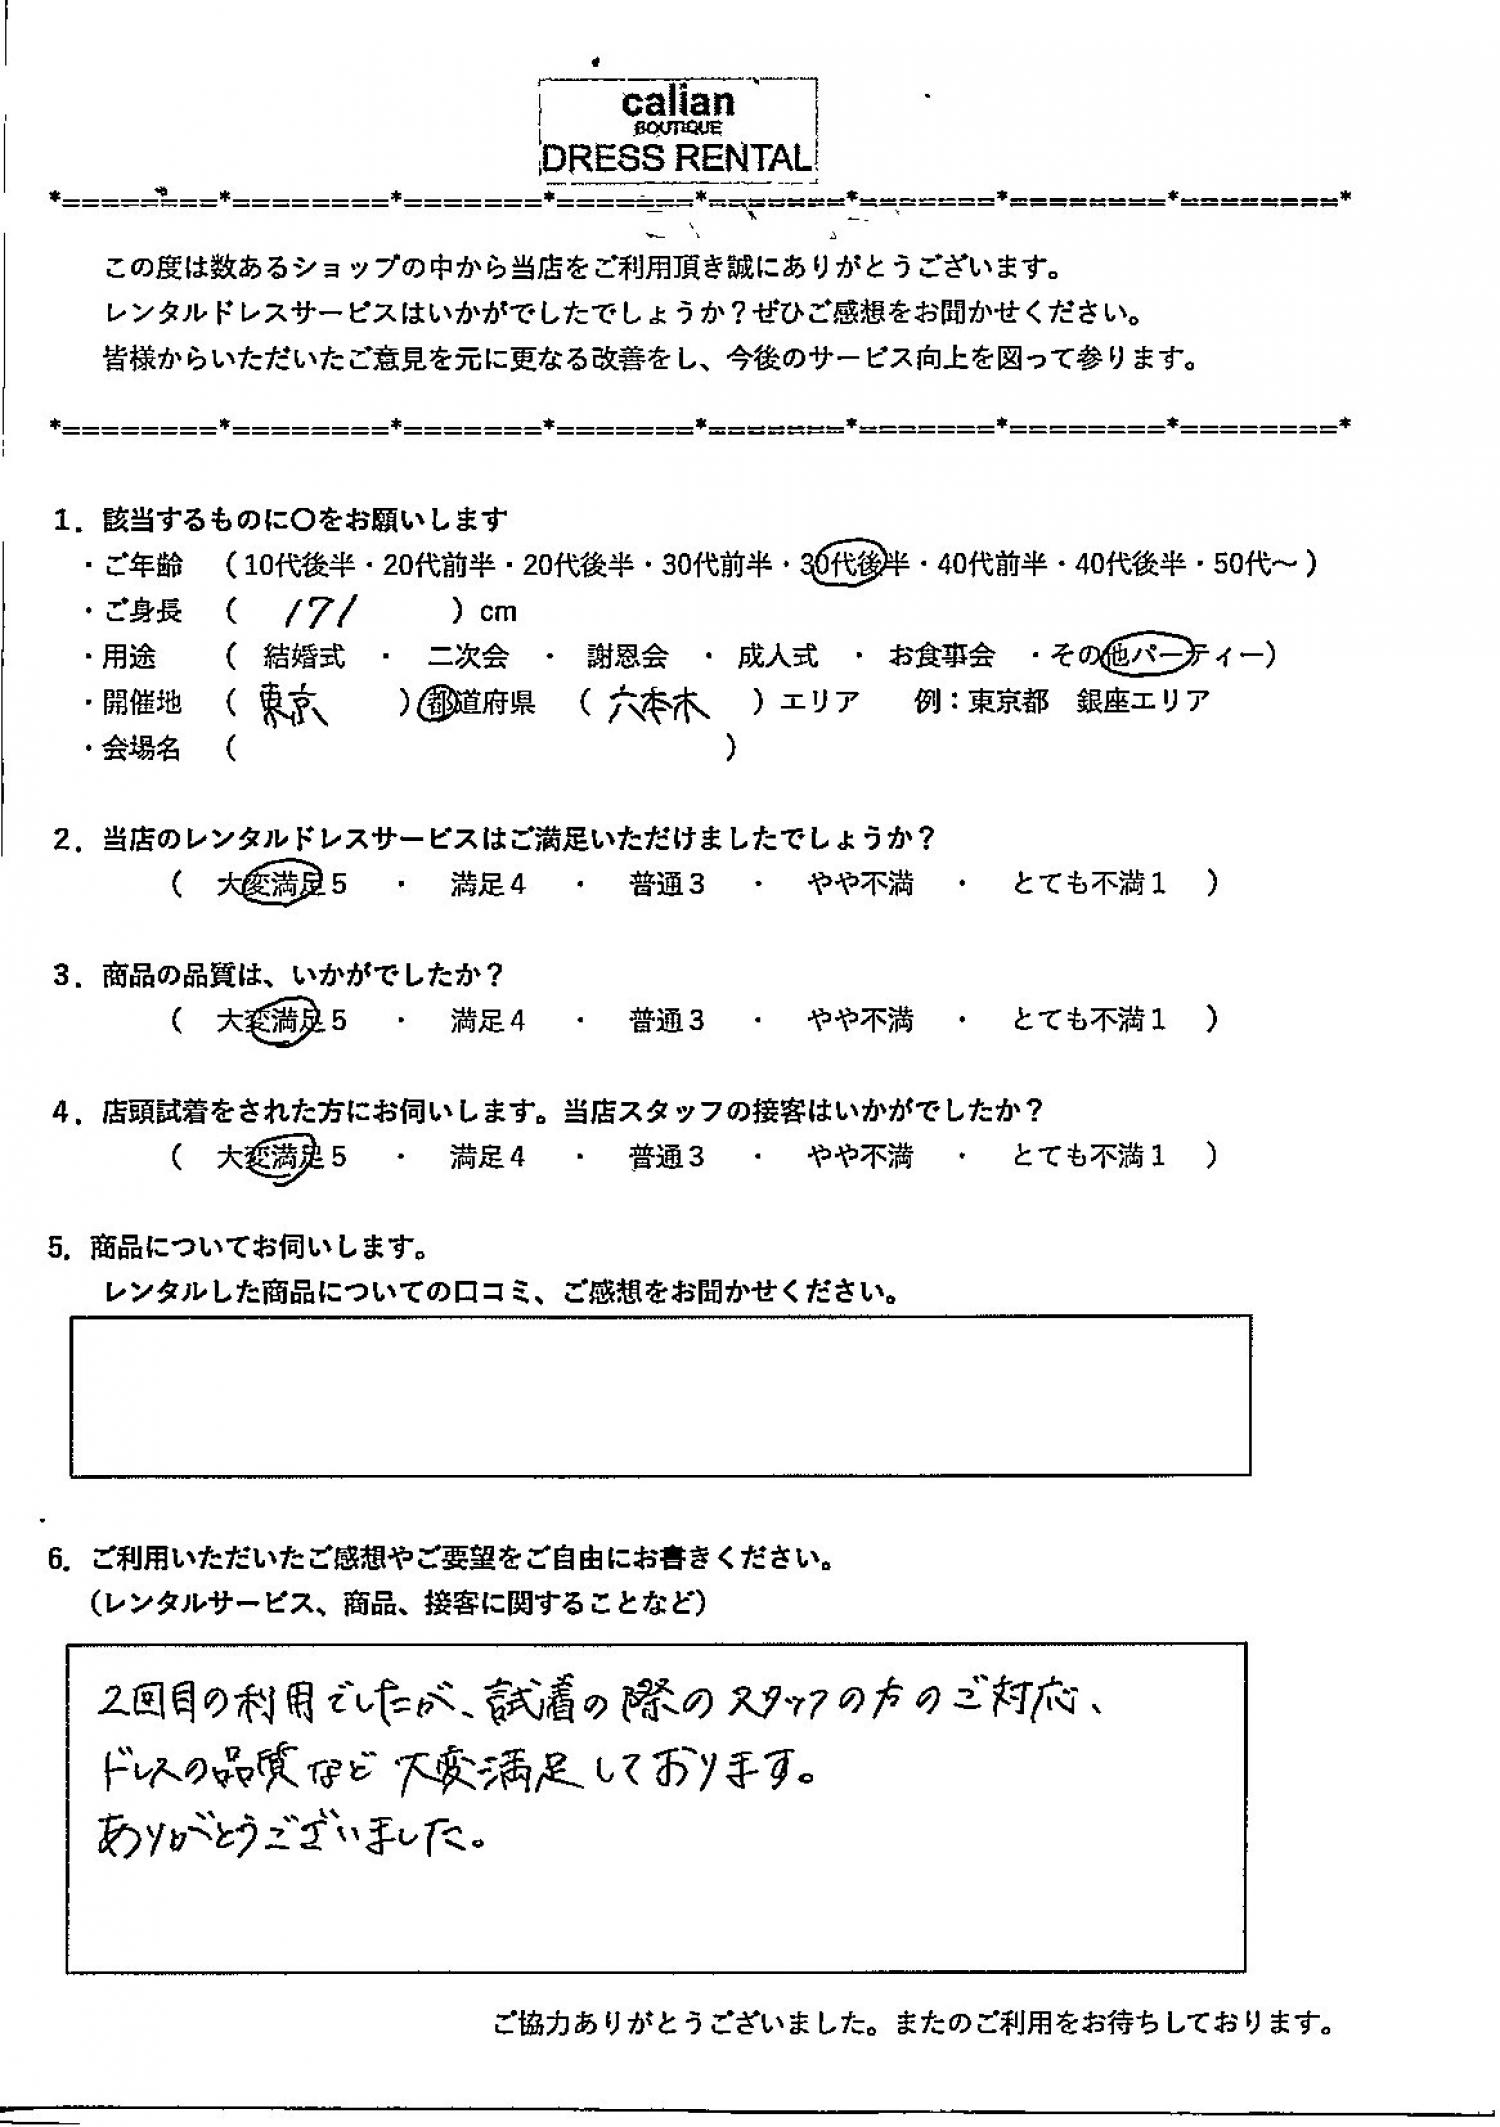 calian
BOUTIQUE
DRESS RENTAL
*========*========*=======*=======*=======*=======*========*========*
この度は数あるショップの中から当店をご利用頂き誠にありがとうございます。
レンタルドレスサービスはいかがでしたでしょうか？ぜひご感想をお聞かせください。
皆様からいただいたご意見を元に更なる改善をし、今後のサービス向上を図って参ります。
*========*========*=======*=======*=======*=======*========*========*
1．該当するものに〇をお願いします
・ご年齢 （10代後半・20代前半・20代後半・30代前半・30代後半・40代前半・40代後半・50代～）
・ご身長 （ 171 ）cm
・用途 （ 結婚式 ・ 二次会 ・ 謝恩会 ・ 成人式 ・ お食事会 ・その他パーティー）
・開催地 （ 東京 ）都道府県 （ 六本木 ）エリア 例：東京都 銀座エリア
・会場名 （ ）
2．当店のレンタルドレスサービスはご満足いただけましたでしょうか？
（ 大変満足5 ・ 満足4 ・ 普通3 ・ やや不満 ・ とても不満1 ）
3．商品の品質は、いかがでしたか？
（ 大変満足5 ・ 満足4 ・ 普通3 ・ やや不満 ・ とても不満1 ）
4．店頭試着をされた方にお伺いします。当店スタッフの接客はいかがでしたか？
（ 大変満足5 ・ 満足4 ・ 普通3 ・ やや不満 ・ とても不満1 ）
5．商品についてお伺いします。
レンタルした商品についての口コミ、ご感想をお聞かせください。
6．ご利用いただいたご感想やご要望をご自由にお書きください。
（レンタルサービス、商品、接客に関することなど）
2回目の利用でしたが、試着の際のスタッフの方のご対応、
ドレスの品質など大変満足しております。
ありがとうございました。
ご協力ありがとうございました。またのご利用をお待ちしております。